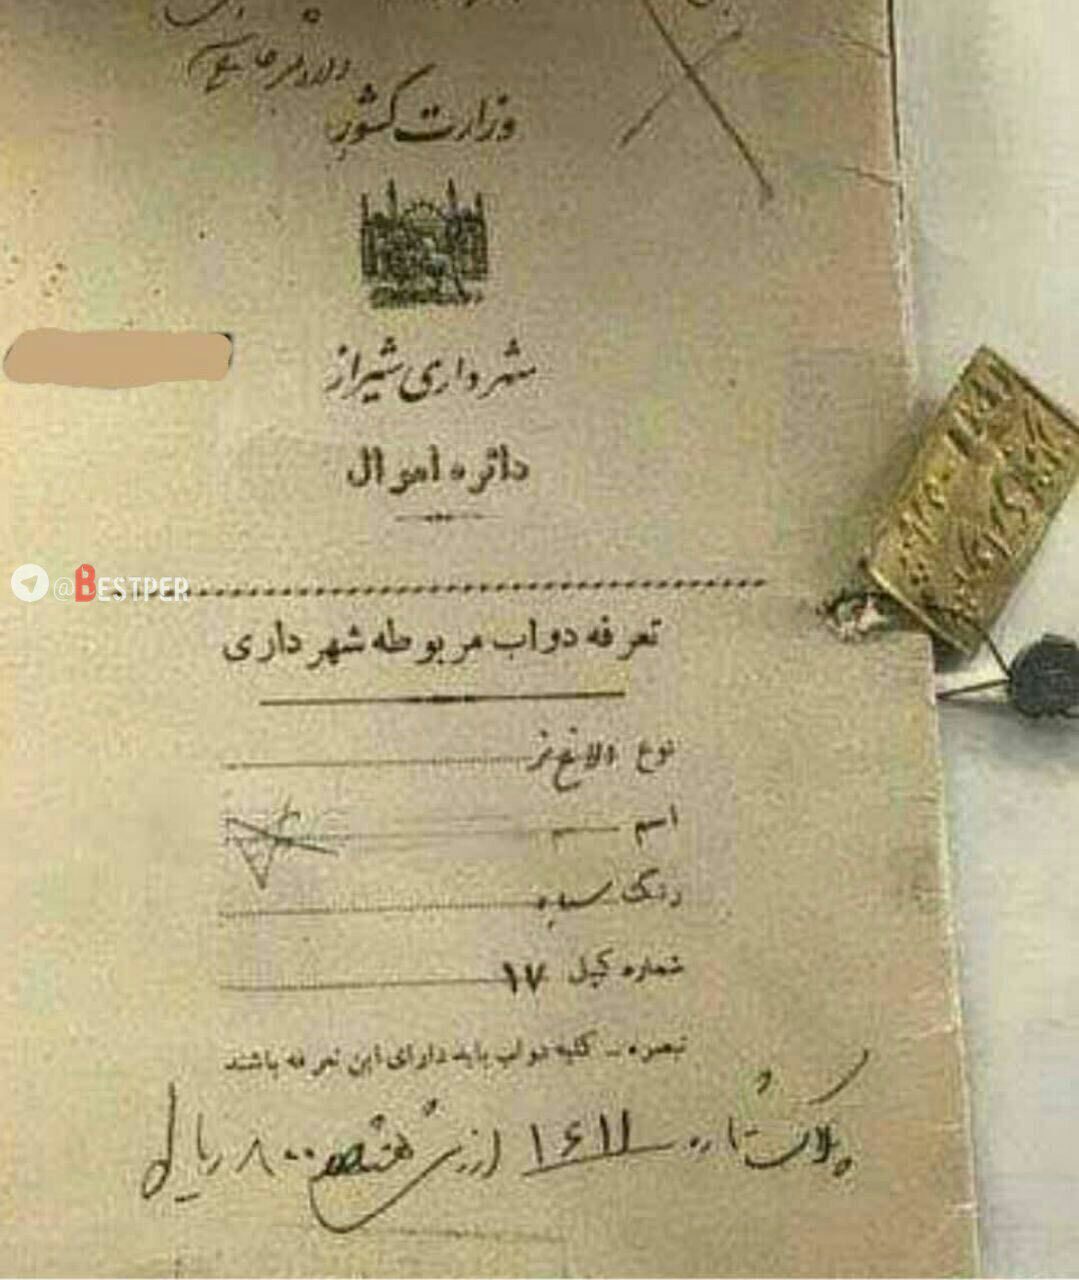 وزارت کشور
شهرداری شیراز
دائره اموال
@BESTPER
تعرفه دواب مربوطه شهرداری
نوع الاغ نر
اسم
رنگ سیاه
شماره کپل ۱۷
تبصره - کلیه دواب باید دارای این تعرفه باشند
پلاک شماره ۱۶۱۱ ارزش هشتصد ۸۰۰ ریال